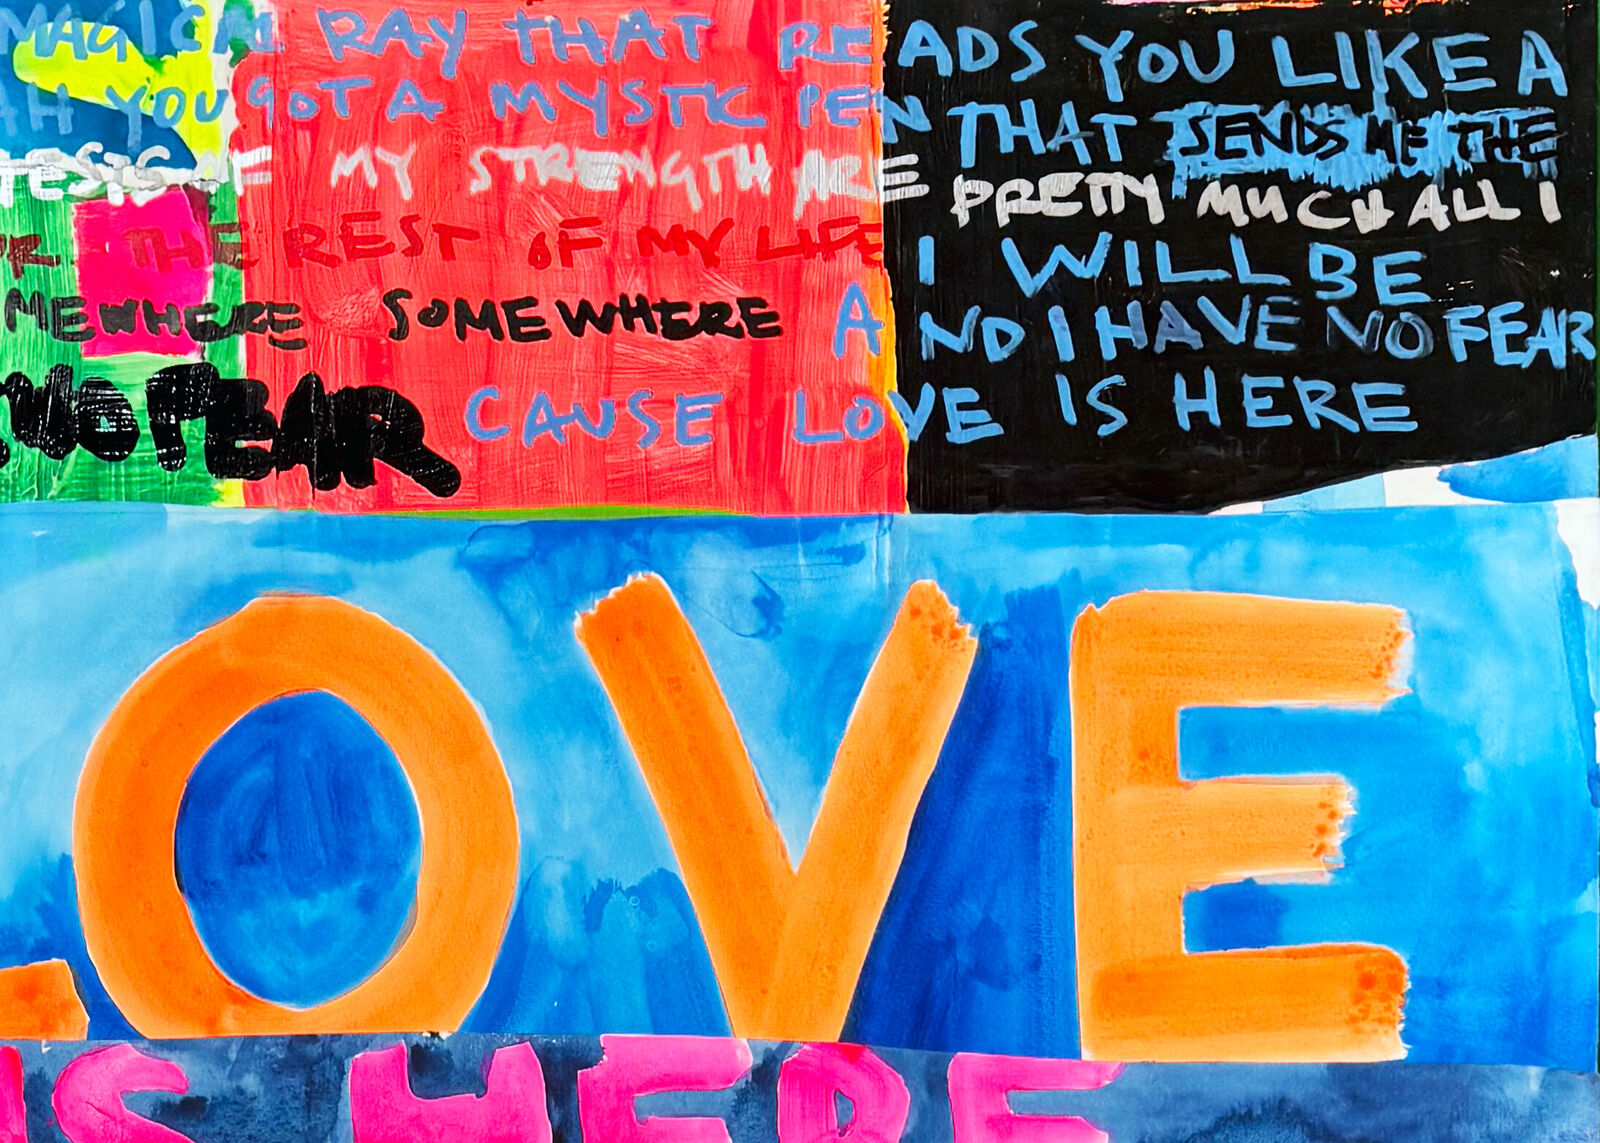 MAGICAL RAY THAT READS YOU LIKE A
AH YOU GOT A MYSTIC PEN THAT SENDS ME THE
TESTS OF MY STRENGTH ARE PRETTY MUCH ALL I
OR THE REST OF MY LIFE I WILL BE
MEWHERE SOMEWHERE AND I HAVE NO FEAR
NO FEAR CAUSE LOVE IS HERE
LOVE
IS HERE